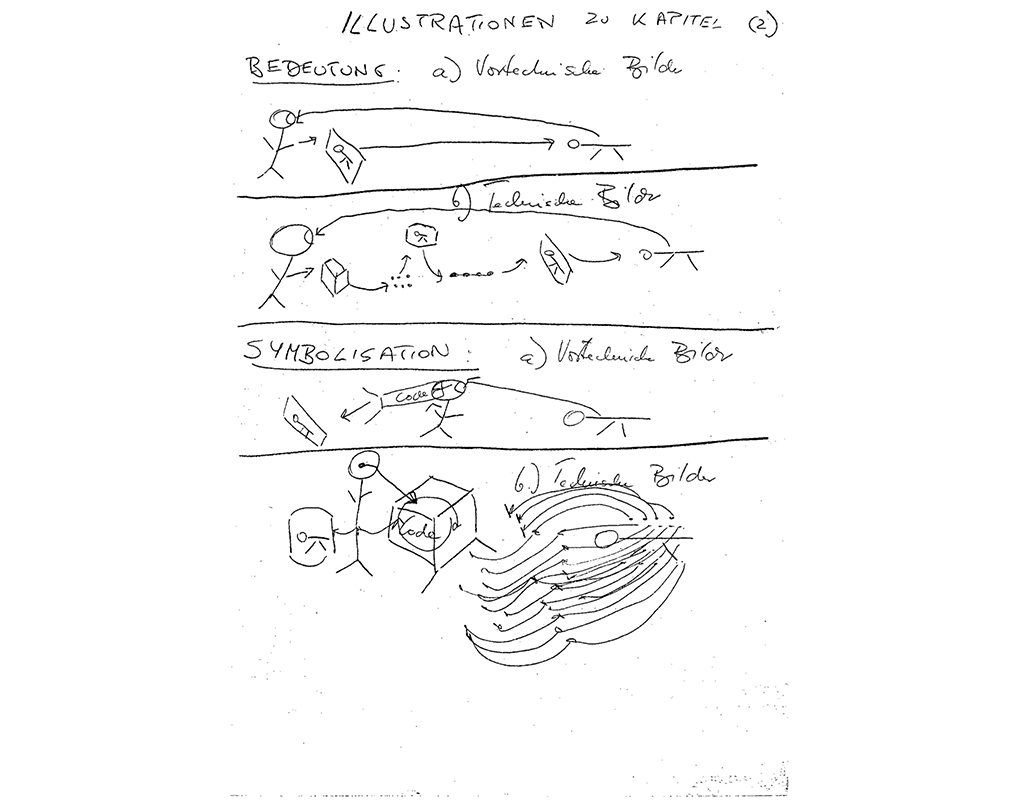 ILLUSTRATIONEN ZU KAPITEL (2)
BEDEUTUNG: a) Vortechnische Bilder
b) Technische Bilder
SYMBOLISATION: a) Vortechnische Bilder
Code
b.) Technische Bilder
Code